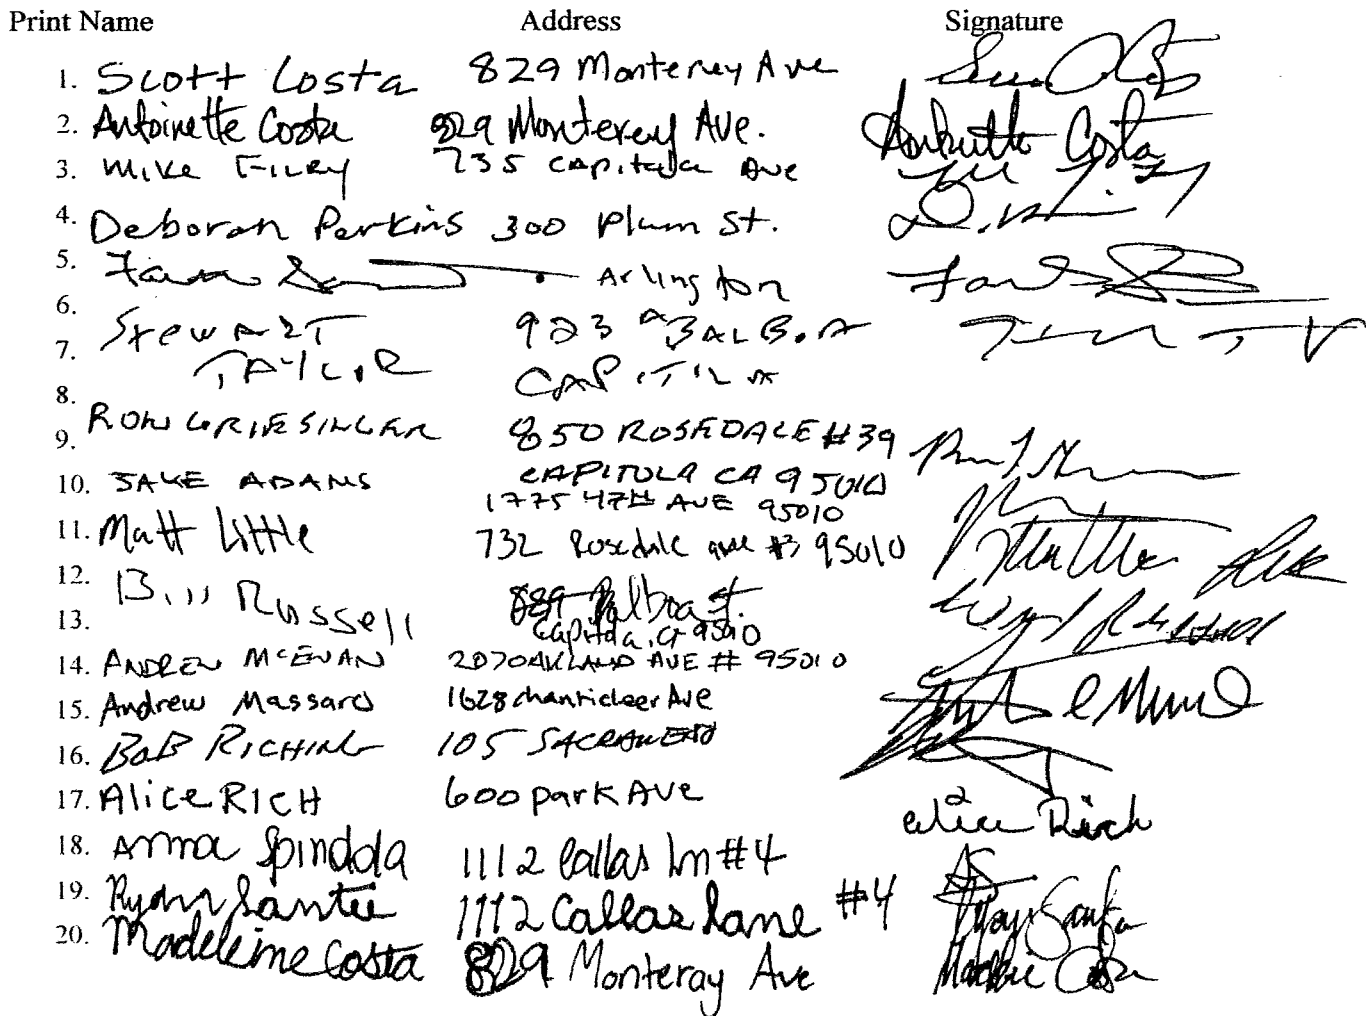 Print Name Address Signature
1. Scott Costa 829 Monterey Ave
2. Antoinette Costa 829 Monterey Ave. Antoinette Costa
3. Mike 735 Capitola Ave
4. Deborah Perkins 300 Plum St.
5. Arlington
6. Stewart 923 Balboa
7. Taylor Capitola
8.
9. RON GRIESINGER 850 ROSEDALE #39
CAPITOLA CA 95010
10. JAKE ADAMS 1775 47TH AVE 95010
11. Matt Little 732 Rosedale ave #3 95010
12. Bill Russell 889 Balboa st.
13. Capitola, CA 95010
14. ANDREW McEWAN 207 OAKLAND AVE # 95010
15. Andrew Massaro 1628 chanticleer Ave
16. BOB RICHING 105 SACRAMENTO
17. Alice RICH 600 park Ave Alice Rich
18. Anna Spindola 1112 Callas Ln #4 AS
19. Ryan Santee 1112 Callas Lane #4
20. Madeleine Costa 829 Monteray Ave